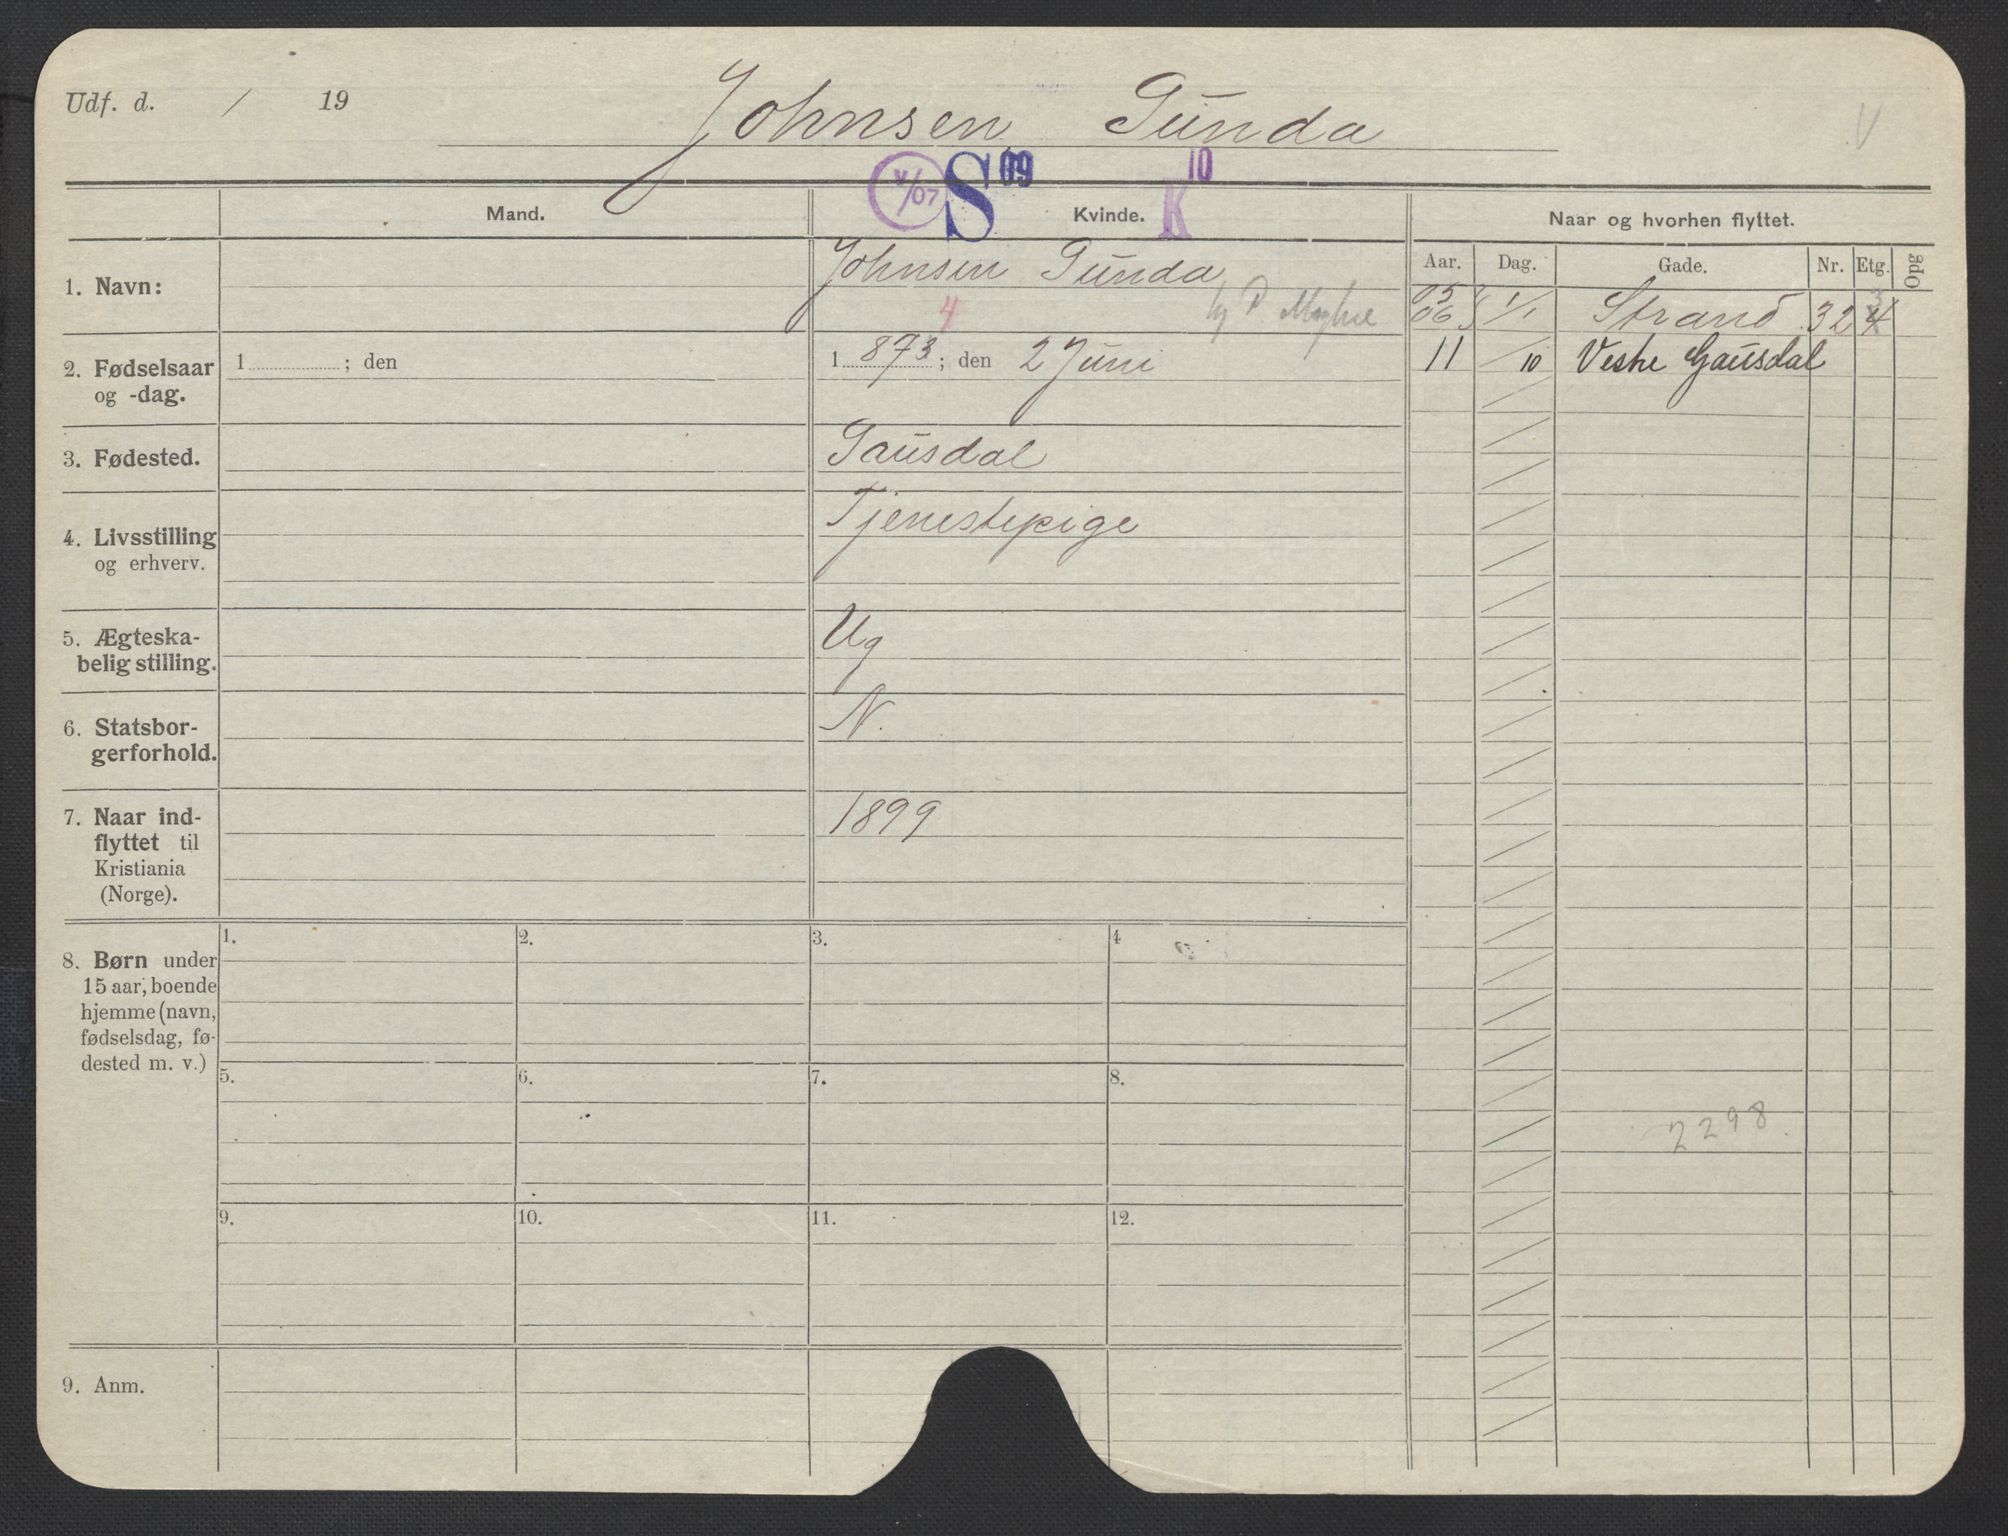 Udf. d. / 19
Johnsen Gunda
V
V/07 S 09 K 10
Mand.
Kvinde.
Naar og hvorhen flyttet.
Aar. Dag. Gade. Nr. Etg. Opg
1. Navn:
Johnsen Gunda
4
hj P.
05
06 1/1 Strand 32 4
11 / 10 Vestre Gausdal
2. Fødselsaar
og -dag.
1 ; den
1 873 ; den 2 Juni
3. Fødested.
Gausdal
4. Livsstilling
og erhverv.
Tjenestepige
5. Ægteska-
belig stilling.
Ug
6. Statsbor-
gerforhold.
N.
7. Naar ind-
flyttet til
Kristiania
(Norge).
1899
8. Børn under
15 aar, boende
hjemme (navn,
fødselsdag, fø-
dested m. v.)
1. 2. 3. 4
5. 6. 7. 8.
9. 10. 11. 12.
2298
9. Anm.